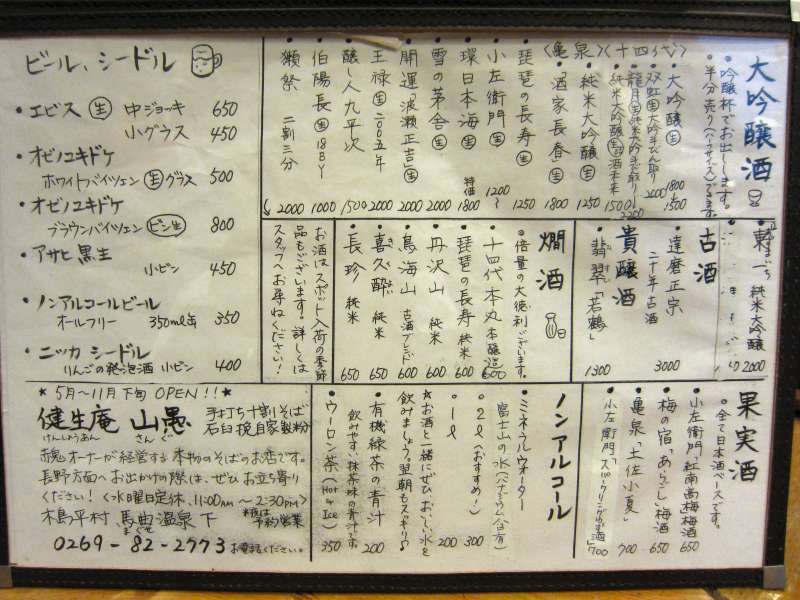 ビール、シードル
・エビス 生 中ジョーキ 650
小グラス 450
・オゼノユキドケ
ホワイトバイツェン 生 グラス 500
・オゼノユキドケ
ブラウンバイツェン ビン生 800
・アサヒ黒生
小ビン 450
・ノンアルコールビール
オールフリー 350ml缶 350
・ニッカ シードル
りんごの発泡酒 小ビン 400
大吟醸酒
・吟醸杯でお出しします。
半分売り(ハーフサイズ)できます。
〈十四代〉
大吟醸 生 1800
双虹 生 大吟手びん取り 2000
龍月 生 純米大吟手取り
純米大吟醸 生 1500
〈亀泉〉
純米大吟醸 生 1250
・酒家長春 生 1800
・琵琶の長寿 生 1250
・小左衛門 生 1200〜
・環日本海 生 特価 1800
・雪の茅舎 生 2000
・開運 波瀬正吉 生 2000
・王禄 生 2005年 2000
・醸し人九平次 1500
・伯陽長 生 18BY 1000
・獺祭 二割三分 2000
純米大吟醸 2000
古酒
・達磨正宗
二十年古酒 3000
貴醸酒
・翡翠「若鶴」 1300
燗酒
・倍量の大徳利ございます。
・十四代 本丸 本醸造 600
・琵琶の長寿 純米 600
・丹沢山 純米 600
・鳥海山 古酒ブレンド 600
・喜久酔 純米 650
・長珍 純米 650
お酒はスポット入荷の季節
品もございます。詳しくは
スタッフへお尋ねください!
果実酒
・全て日本酒ベースです。
・小左衛門 紅南高梅梅酒 650
・梅の宿「あらごし」梅酒 650
・亀泉「土佐小夏」 700
・小左衛門「スパークリングゆず酒」 700
ノンアルコール
・ミネラルウォーター
富士山の水(バナジウム含有)
・2ℓ(おすすめ!) 300
・1ℓ 200
☆お酒と一緒にぜひおいしい水を
飲みましょう。翌朝もスッキリ♪
・有機緑茶の青汁 200
飲みやすい抹茶味の青汁です。
・ウーロン茶(Hot or Ice) 350
★5月〜11月下旬 OPEN!!★
健生庵 山愚 手打ち十割そば
けんしょうあん さんぐ 石臼挽自家製粉
赤鬼オーナーが経営する本物のそばのお店です。
長野方面へお出かけの際は、ぜひお立ち寄り
ください!〈水曜日定休、11:00AM〜2:30PM〉
木島平村 馬曲温泉下 夜は予約営業
まぐせ
0269-82-2773 お電話ください。